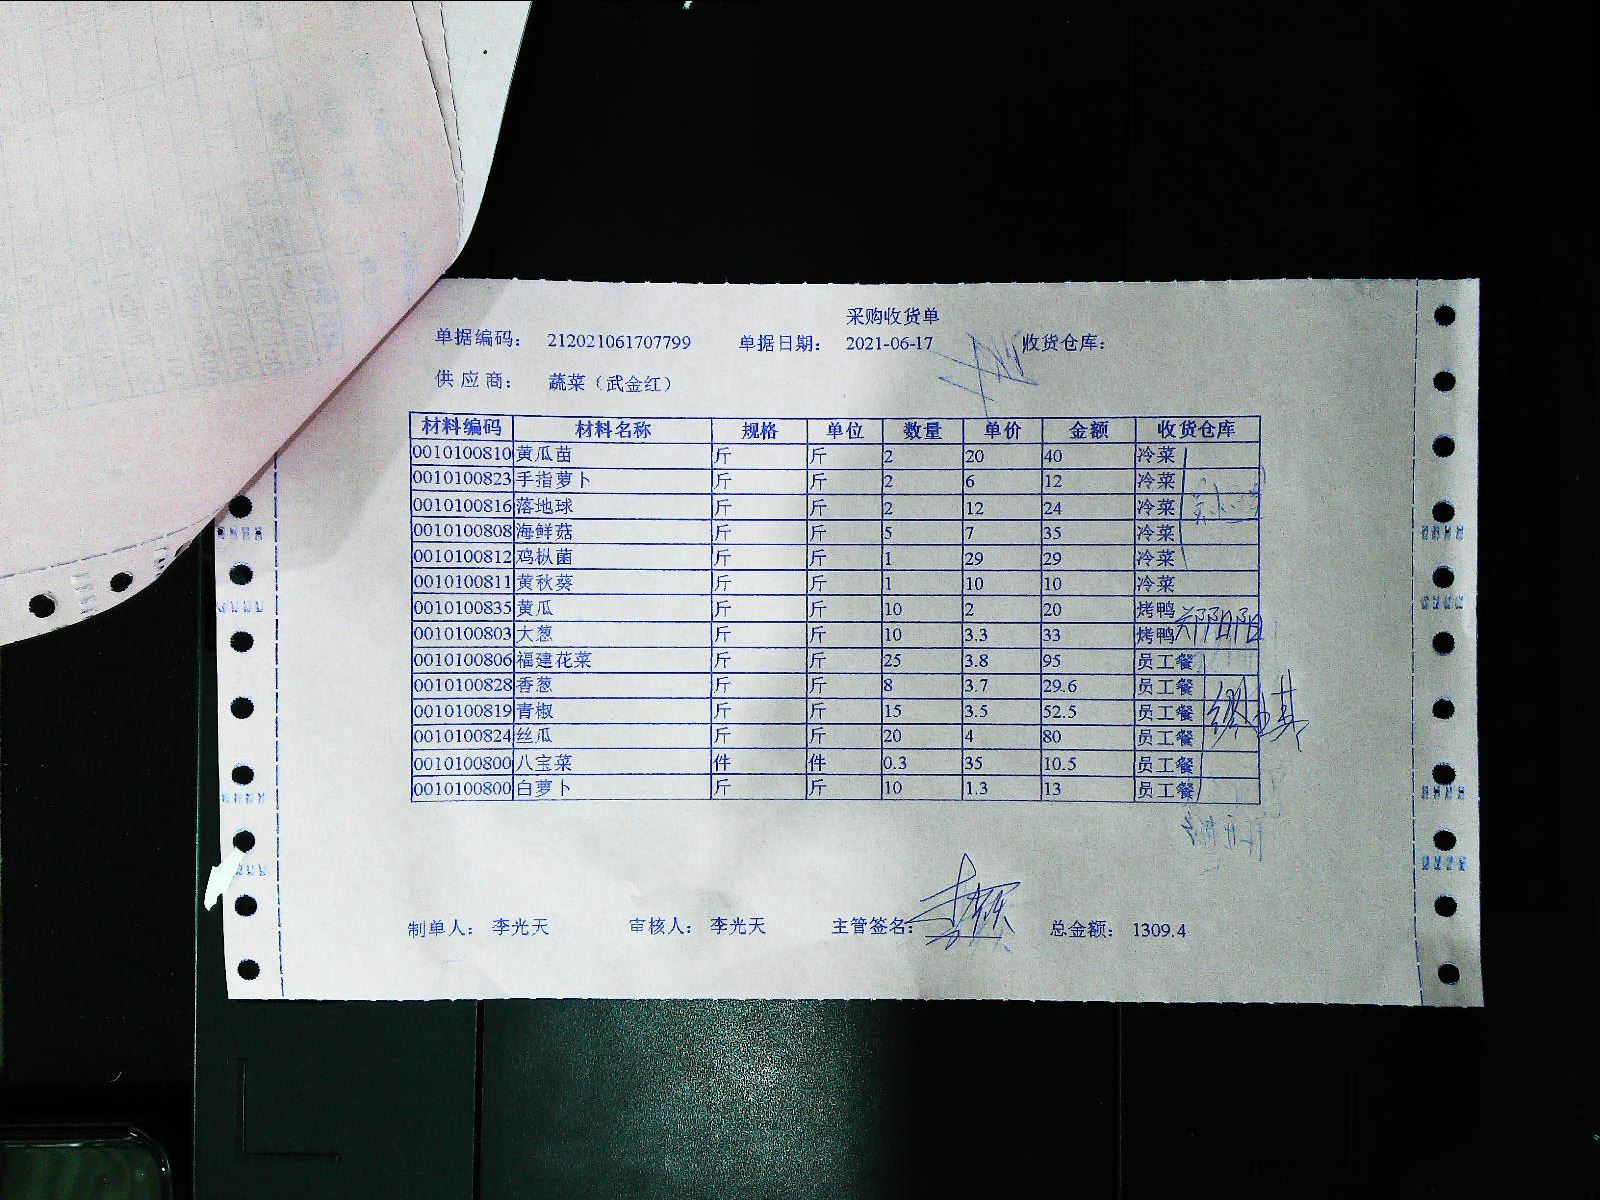 采购收货单
单据编码： 212021061707799 单据日期： 2021-06-17 收货仓库：
供应商： 蔬菜（武金红）
材料编码 材料名称 规格 单位 数量 单价 金额 收货仓库
0010100810 黄瓜苗 斤 斤 2 20 40 冷菜
0010100823 手指萝卜 斤 斤 2 6 12 冷菜
0010100816 落地球 斤 斤 2 12 24 冷菜
0010100808 海鲜菇 斤 斤 5 7 35 冷菜
0010100812 鸡枞菌 斤 斤 1 29 29 冷菜
0010100811 黄秋葵 斤 斤 1 10 10 冷菜
0010100835 黄瓜 斤 斤 10 2 20 烤鸭
0010100803 大葱 斤 斤 10 3.3 33 烤鸭
0010100806 福建花菜 斤 斤 25 3.8 95 员工餐
0010100828 香葱 斤 斤 8 3.7 29.6 员工餐
0010100819 青椒 斤 斤 15 3.5 52.5 员工餐
0010100824 丝瓜 斤 斤 20 4 80 员工餐
0010100800 八宝菜 件 件 0.3 35 10.5 员工餐
0010100800 白萝卜 斤 斤 10 1.3 13 员工餐
制单人： 李光天 审核人： 李光天 主管签名： 总金额： 1309.4